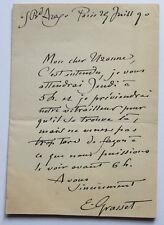 Bd Arago Paris 29 Juill 90
Mon cher Uzanne,
C'est entendu, je vous
attendrai Jeudi à
5h. et je préviendrai
notre travailleur pour
qu'il se trouve là,
mais ne venez pas
trop tard de façon à
ce que nous puissions
le voir avant 6h.
A vous
Sincèrement
E. Grasset